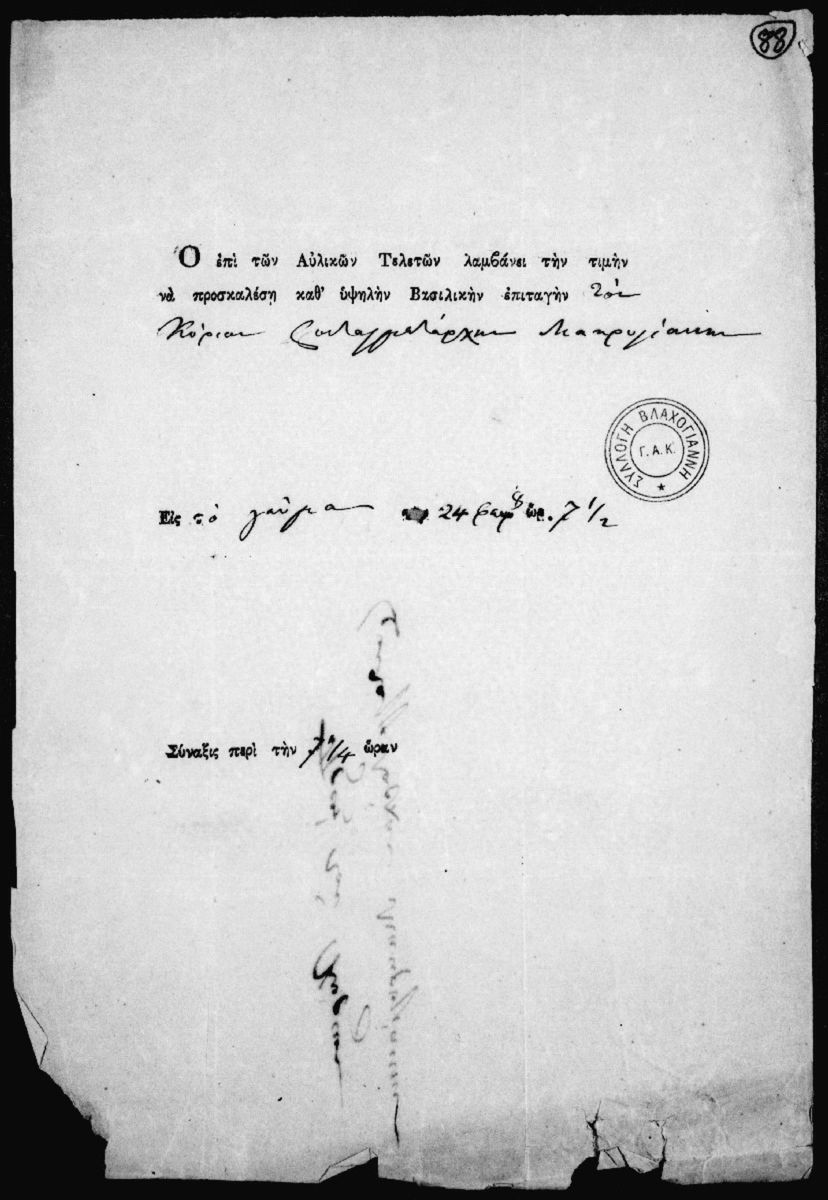 88
Ὁ ἐπὶ τῶν Αὐλικῶν Τελετῶν λαμβάνει τὴν τιμὴν
νὰ προσκαλέσῃ καθ' ὑψηλὴν Βασιλικὴν ἐπιταγὴν τὸν
Κύριον Συνταγματάρχην Μακρυγιάννην
ΣΥΛΛΟΓΗ ΒΛΑΧΟΓΙΑΝΝΗ
Γ.Α.Κ.
Εἰς τὸ γεῦμα 24 ὥρ. 7 1/2
Σύναξις περὶ τὴν 7 1/4 ὥραν